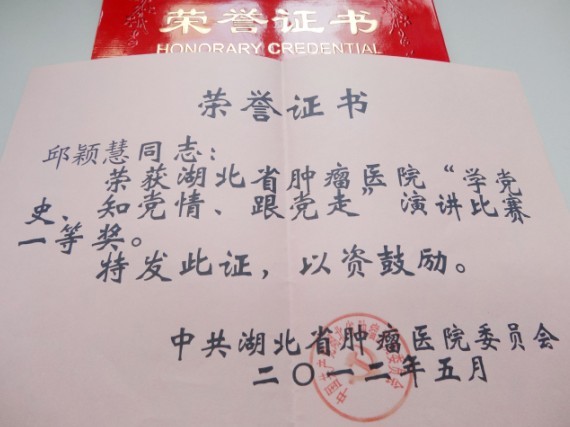 荣誉证书
HONORARY CREDENTIAL
荣誉证书
邱颖慧同志：
荣获湖北省肿瘤医院“学党
史、知党情、跟党走”演讲比赛
一等奖。
特发此证，以资鼓励。
中共湖北省肿瘤医院委员会
二〇一二年五月